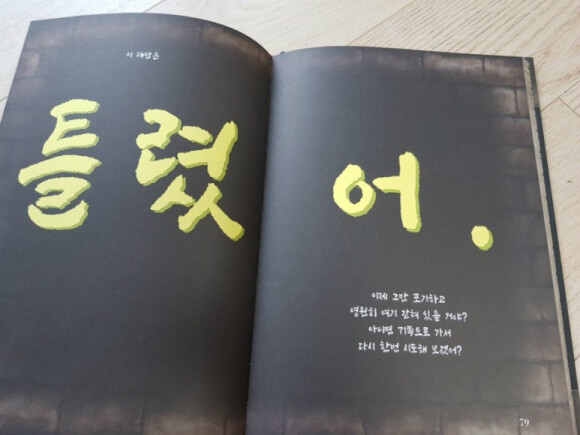 이 대답은
틀렸어.
이제 그만 포기하고
영원히 여기 갇혀 있을 거야?
아니면 기쪽으로 가서
다시 한번 시도해 보겠어?
79